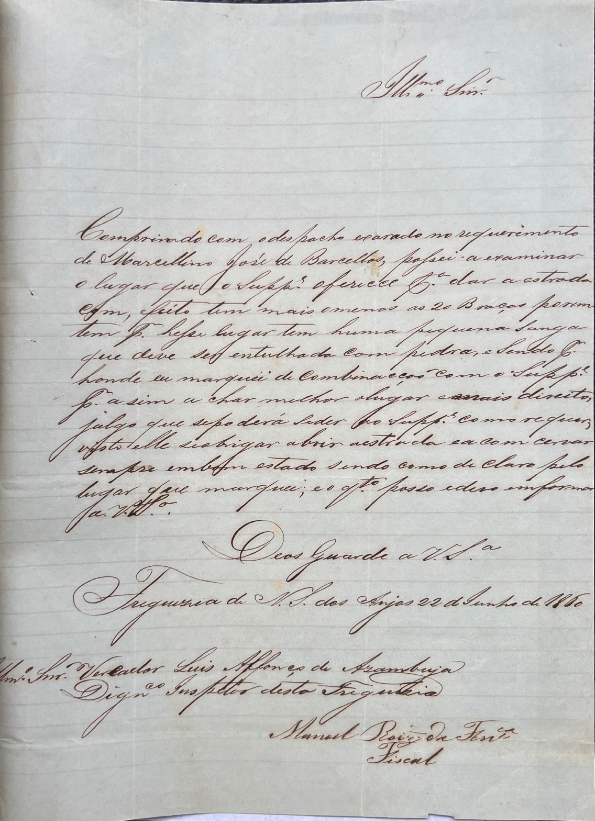 Illmo. Snr.
Comprindo com, odespacho exarado no requerimento
de Marcellino José de Barcellos, passei a examinar
o lugar que o Suppe. oferece pa. dar a estrada
com, efeito tem mais emenos as 20 Braças porem
tem lugar tem huma pequena Sanga
que deve ser entulhada com pedra, e Sendo
honde eu marquei de Combinacção com o Suppe.
asim a char melhor olugar e mais direito,
julgo que sepoderá seder ao Suppe. como requer,
visto elle seobrigar abrir aestrada ea com cervar
sempre embom estado sendo como de claro pelo
lugar que marquei; e o qto. posso edevo emformar
a V. Sa.
Deos Guarde a V. S.a
Freguezia de N. S. dos Anjos 22 de Junho de 1860
Illmo. Snr. Vereador Luis Affonço de Azambuja
Digno. Inspetor desta Freguezia
Manoel Roiz da Fonca.
Fiscal